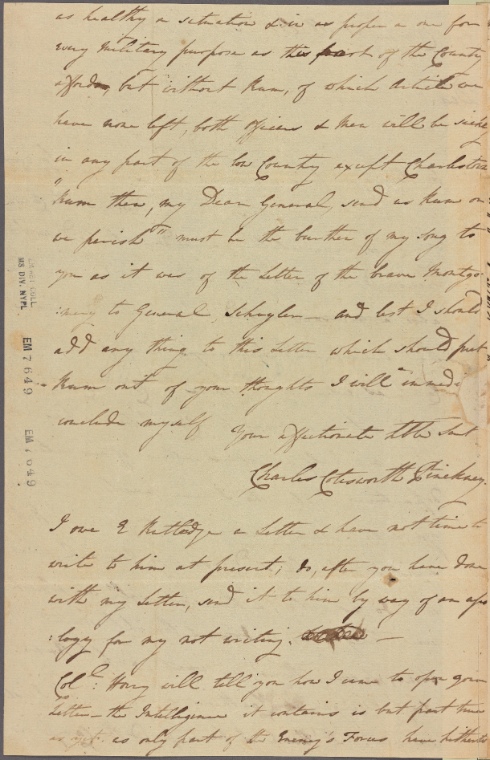 as healthy a situation & in as proper a one for
every Military purpose as this part of the Country
affords, but without Rum, of which Article we
have none left, both officers & Men will be sickly
in any part of the low Country except Charlestown
"Rum then, my Dear General, send us Rum or
we perish" must be the burthen of my song to
you as it was of the Letter of the brave Montgo
:mery to General Schuyler — and lest I should
add any thing to this Letter which should put
Rum out of your thoughts I will
conclude myself Your affectionate
Charles Cotesworth Pinckney.
I owe E Rutledge a Letter & have not time to
write to him at present; do, after you have done
with my Letter, send it to him by way of an apo
:logy for my not writing. —
Col: Horry will tell you how I came to open your
Letter — the Intelligence it contains is but part true
as only part of the Enemy's Forces have hitherto
MS DIV. NYPL
EM 7649
EM 7649